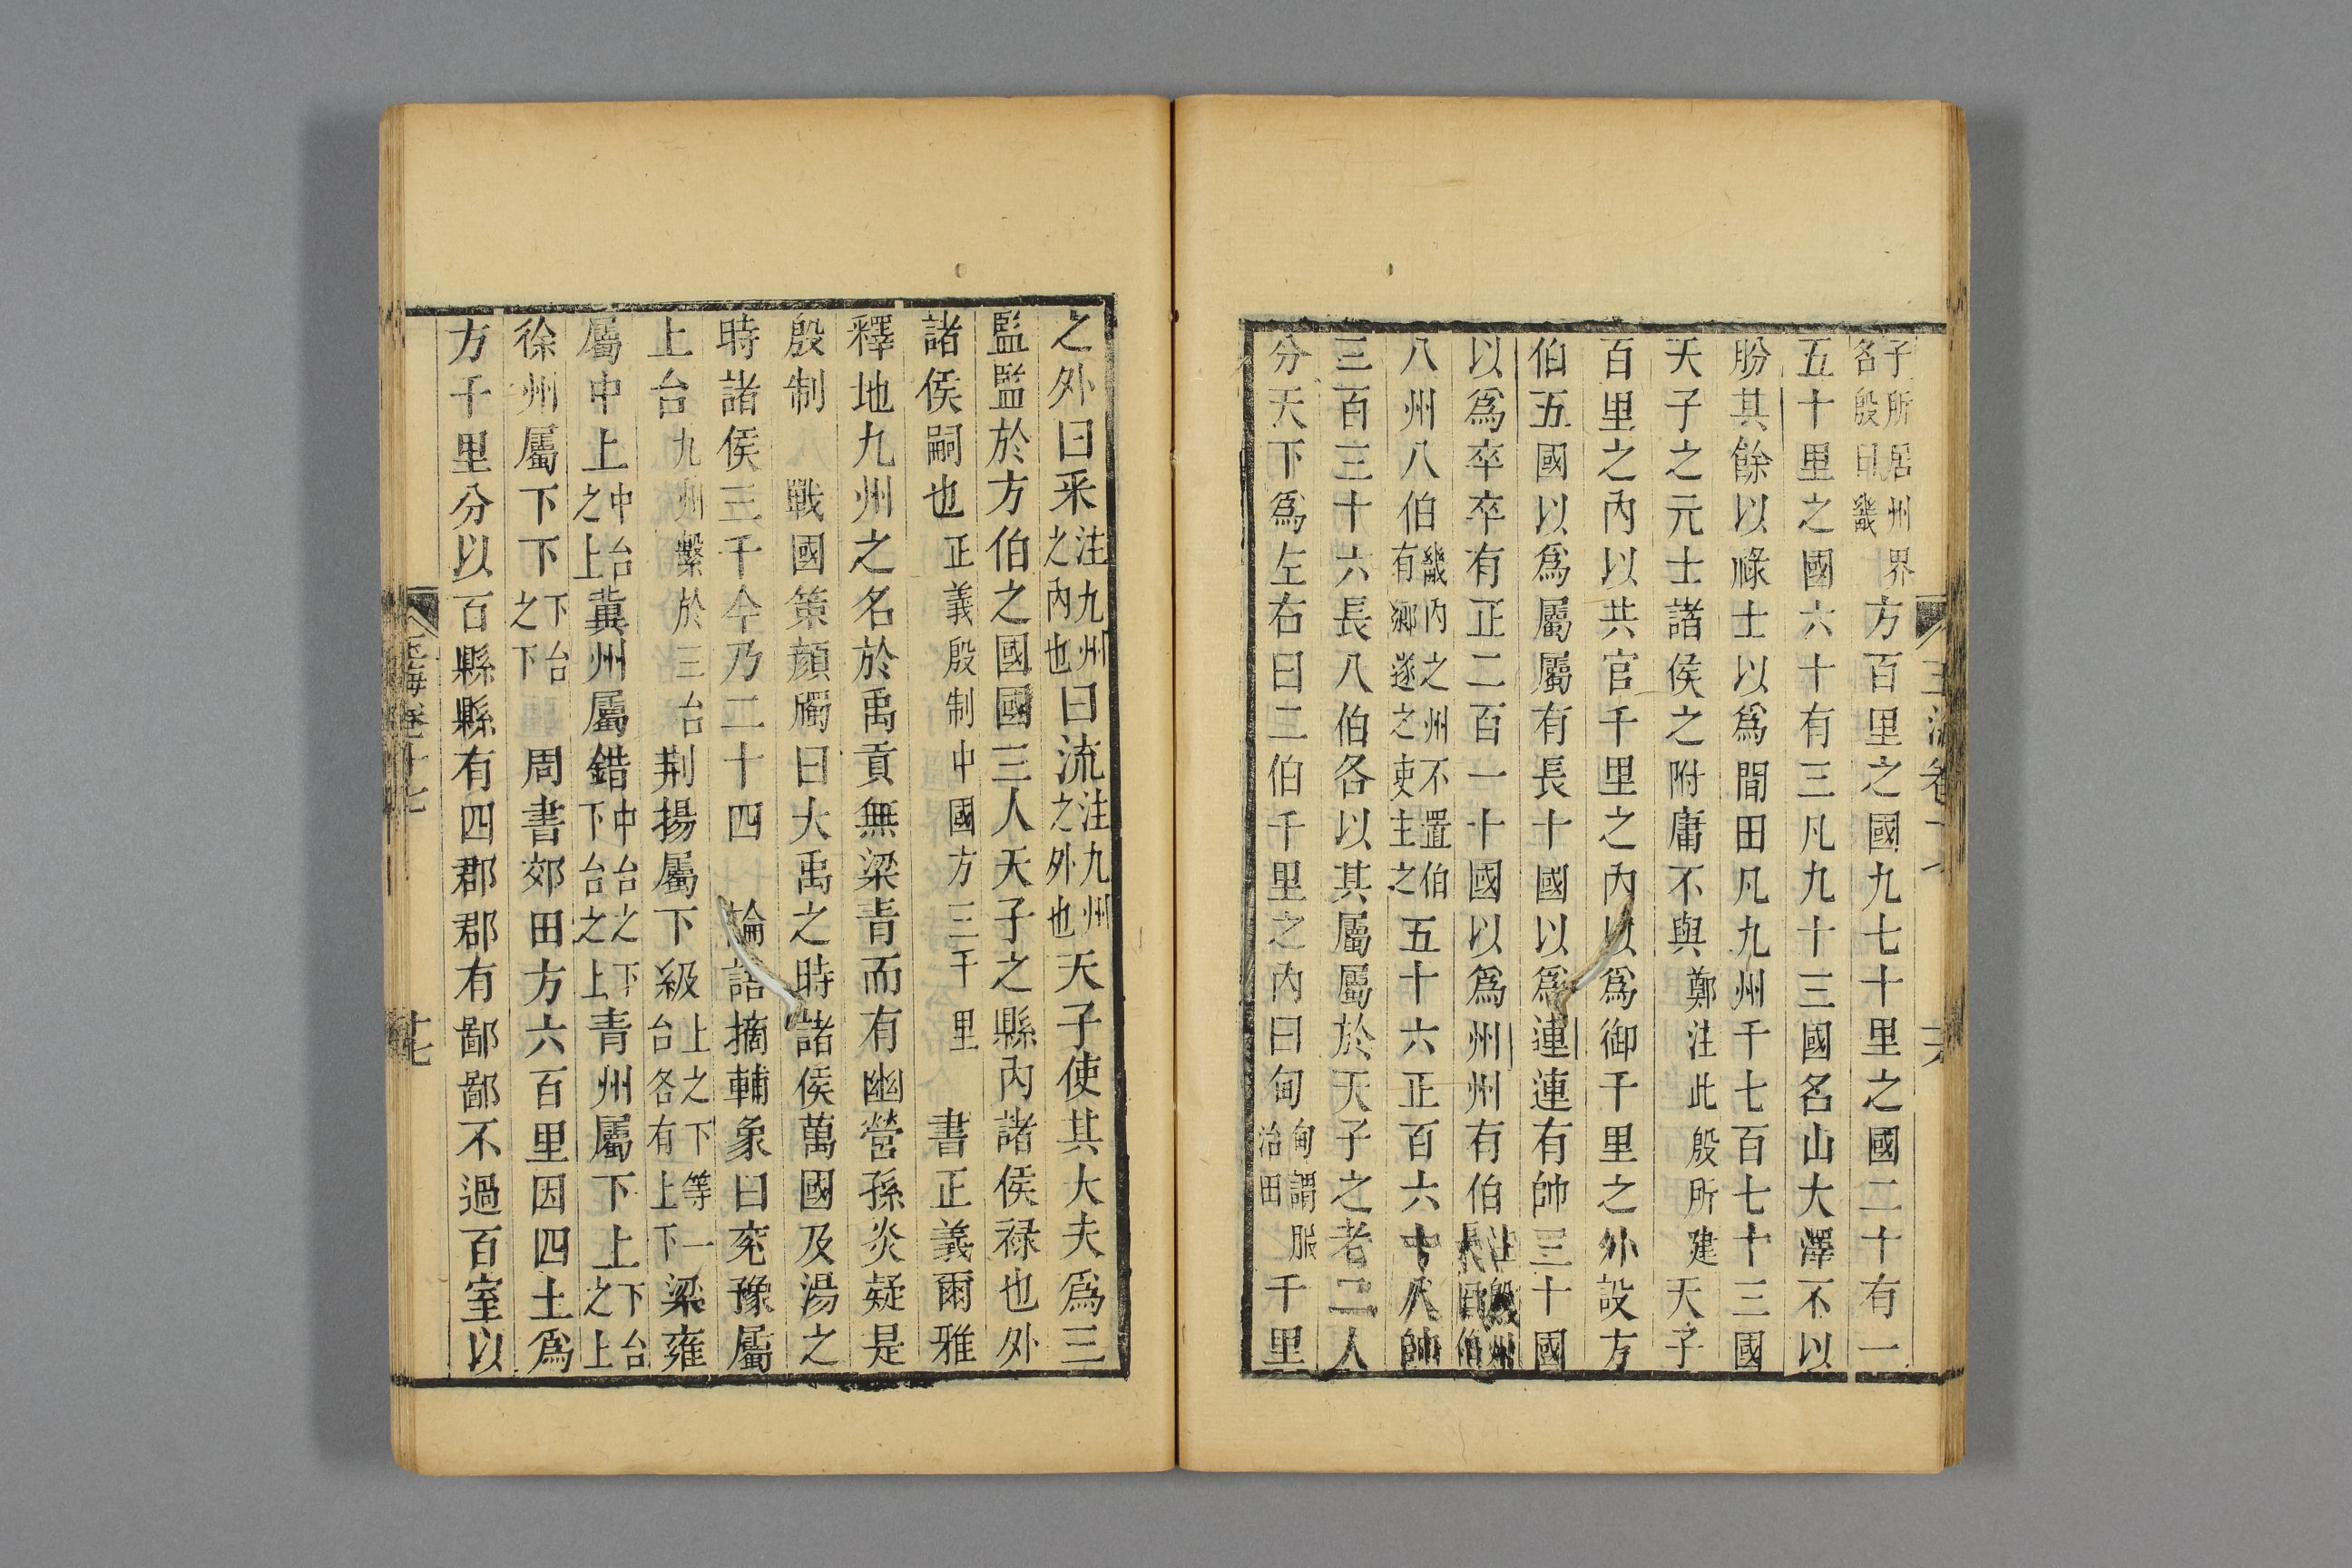 子所居州界名殷曰畿方百里之國九七十里之國二十有一
五十里之國六十有三凡九十三國名山大澤不以
朌其餘以祿士以爲閒田凡九州千七百七十三國
天子之元士諸侯之附庸不與鄭注此殷所建天子
百里之內以共官千里之內以爲御千里之外設方
伯五國以爲屬屬有長十國以爲連連有帥三十國
以爲卒卒有正二百一十國以爲州州有伯注殷州長曰伯
八州八伯畿內之州不置伯有鄉遂之吏主之五十六正百六十八帥
三百三十六長八伯各以其屬屬於天子之老二人
分天下爲左右曰二伯千里之內曰甸甸謂服治田千里
之外曰采注九州之內也曰流注九州之外也天子使其大夫爲三
監監於方伯之國國三人天子之縣內諸侯祿也外
諸侯嗣也正義殷制中國方三千里書正義爾雅
釋地九州之名於禹貢無梁青而有幽營孫炎疑是
殷制戰國策顏斶曰大禹之時諸侯萬國及湯之
時諸侯三千今乃二十四論語摘輔象曰兖豫屬
上台九州繫於三台荆揚屬下級上之下等一台各有上下梁雍
屬中上中台之上冀州屬錯中台之下下台之上青州屬下上下台之上
徐州屬下下下台之下周書郊田方六百里因四土爲
方千里分以百縣縣有四郡郡有鄙鄙不過百室以
玉海卷十七
十七